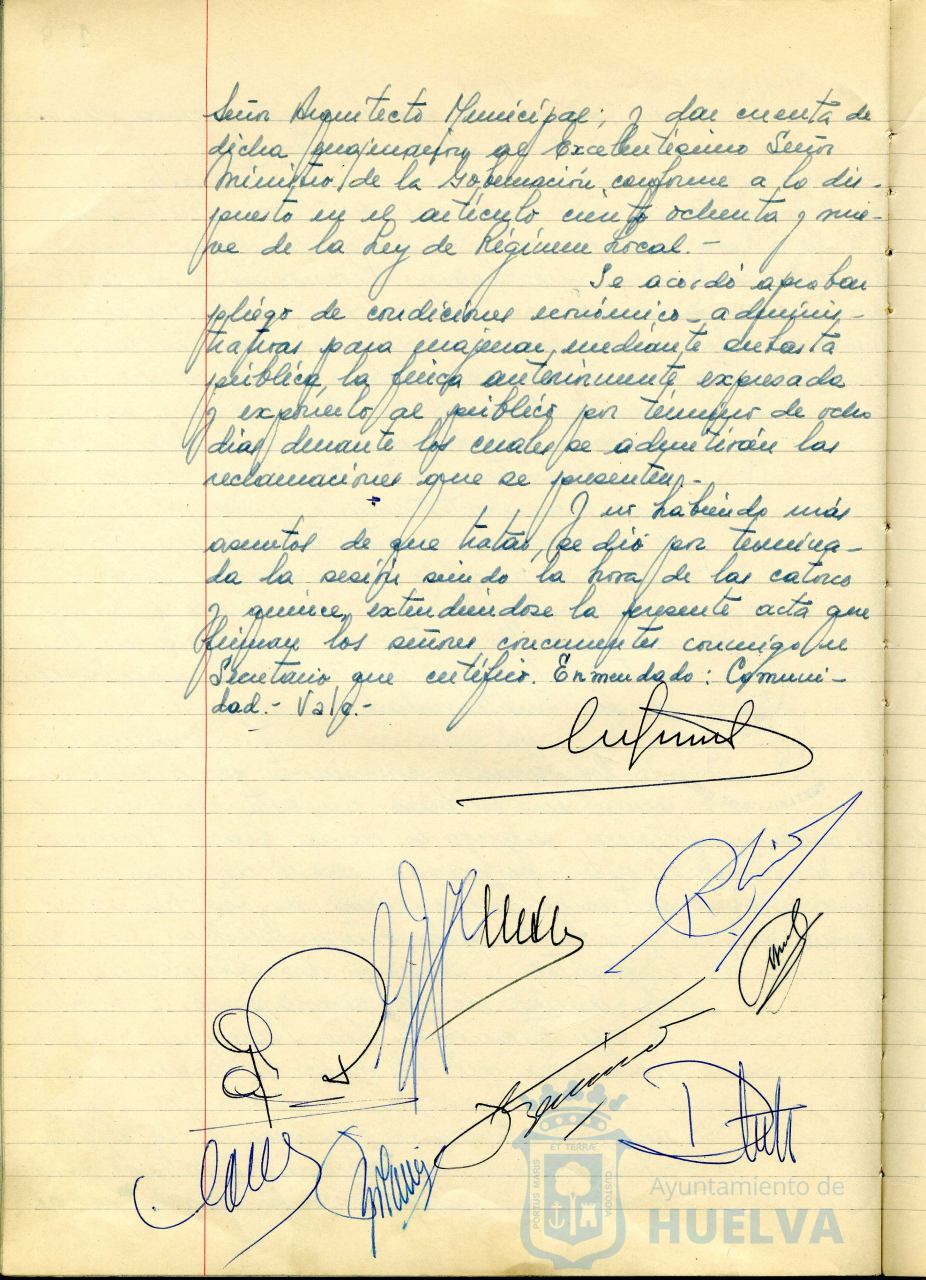 Señor Arquitecto Municipal; y dar cuenta de
dicha enajenación al Excelentísimo Señor
Ministro de la Gobernación, conforme a lo dis-
puesto en el artículo ciento ochenta y nue-
ve de la Ley de Régimen Local.-
Se acordó aprobar
pliego de condiciones económico-adminis-
trativas para enajenar, mediante subasta
pública, la finca anteriormente expresada
y exponerlo al público por término de ocho
días durante los cuales se admitirán las
reclamaciones que se presenten.-
Y no habiendo más
asuntos de que tratar, se dió por termina-
da la sesión siendo la hora de las catorce
y quince, extendiéndose la presente acta que
firman los señores concurrentes conmigo el
Secretario que certifico. Enmendado: Comuni-
dad.- Vale.-
ET TERRÆ
PORTUS MARIS
CUSTODIA
Ayuntamiento de
HUELVA